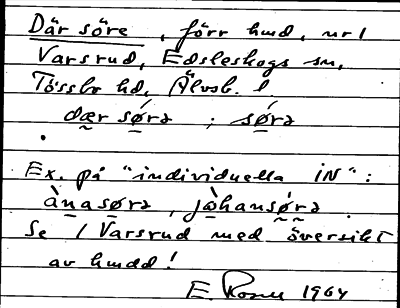 Där söre, förr hmd, nr 1
Varsrud, Edsleskogs sn,
Tössbo hd, Älvsb. l
dær sǿrə ; sǿrə
Ex. på "individuella iN":
ànasørə, jòhansǿrə.
Se / Varsrud med översikt
av hmdd!
E. 1964